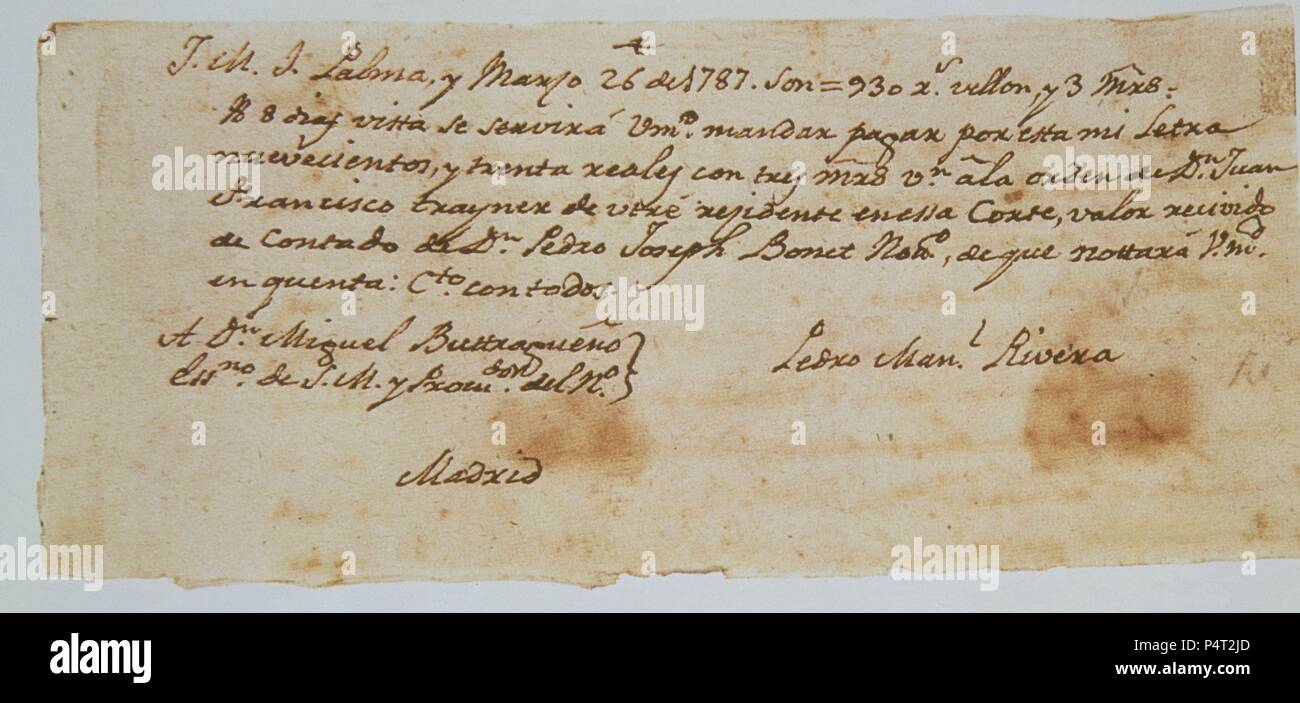 J. M. J. Palma, y Marzo 26 de 1787. Son = 930 r.s vellon, y 3 Mrs.
A 8 dias vista se servirá Vm.d mandar pagar por esta mi Letra
nuevecientos, y trenta reales con tres mrs v.n à la orden de D.n Juan
Francisco Trayner de vtré residente en essa Corte, valor recivido
de Contado de D.n Pedro Joseph Bonet Not.o, de que nottará V.md.
en quenta: C.to con todos
A D.n Miguel Buttragueño
Ess.no de S. M. y Procu.dor del N.o
Pedro Man.l Rivera
Madrid
alamy
alamy
Image ID: P4T2JD
www.alamy.com